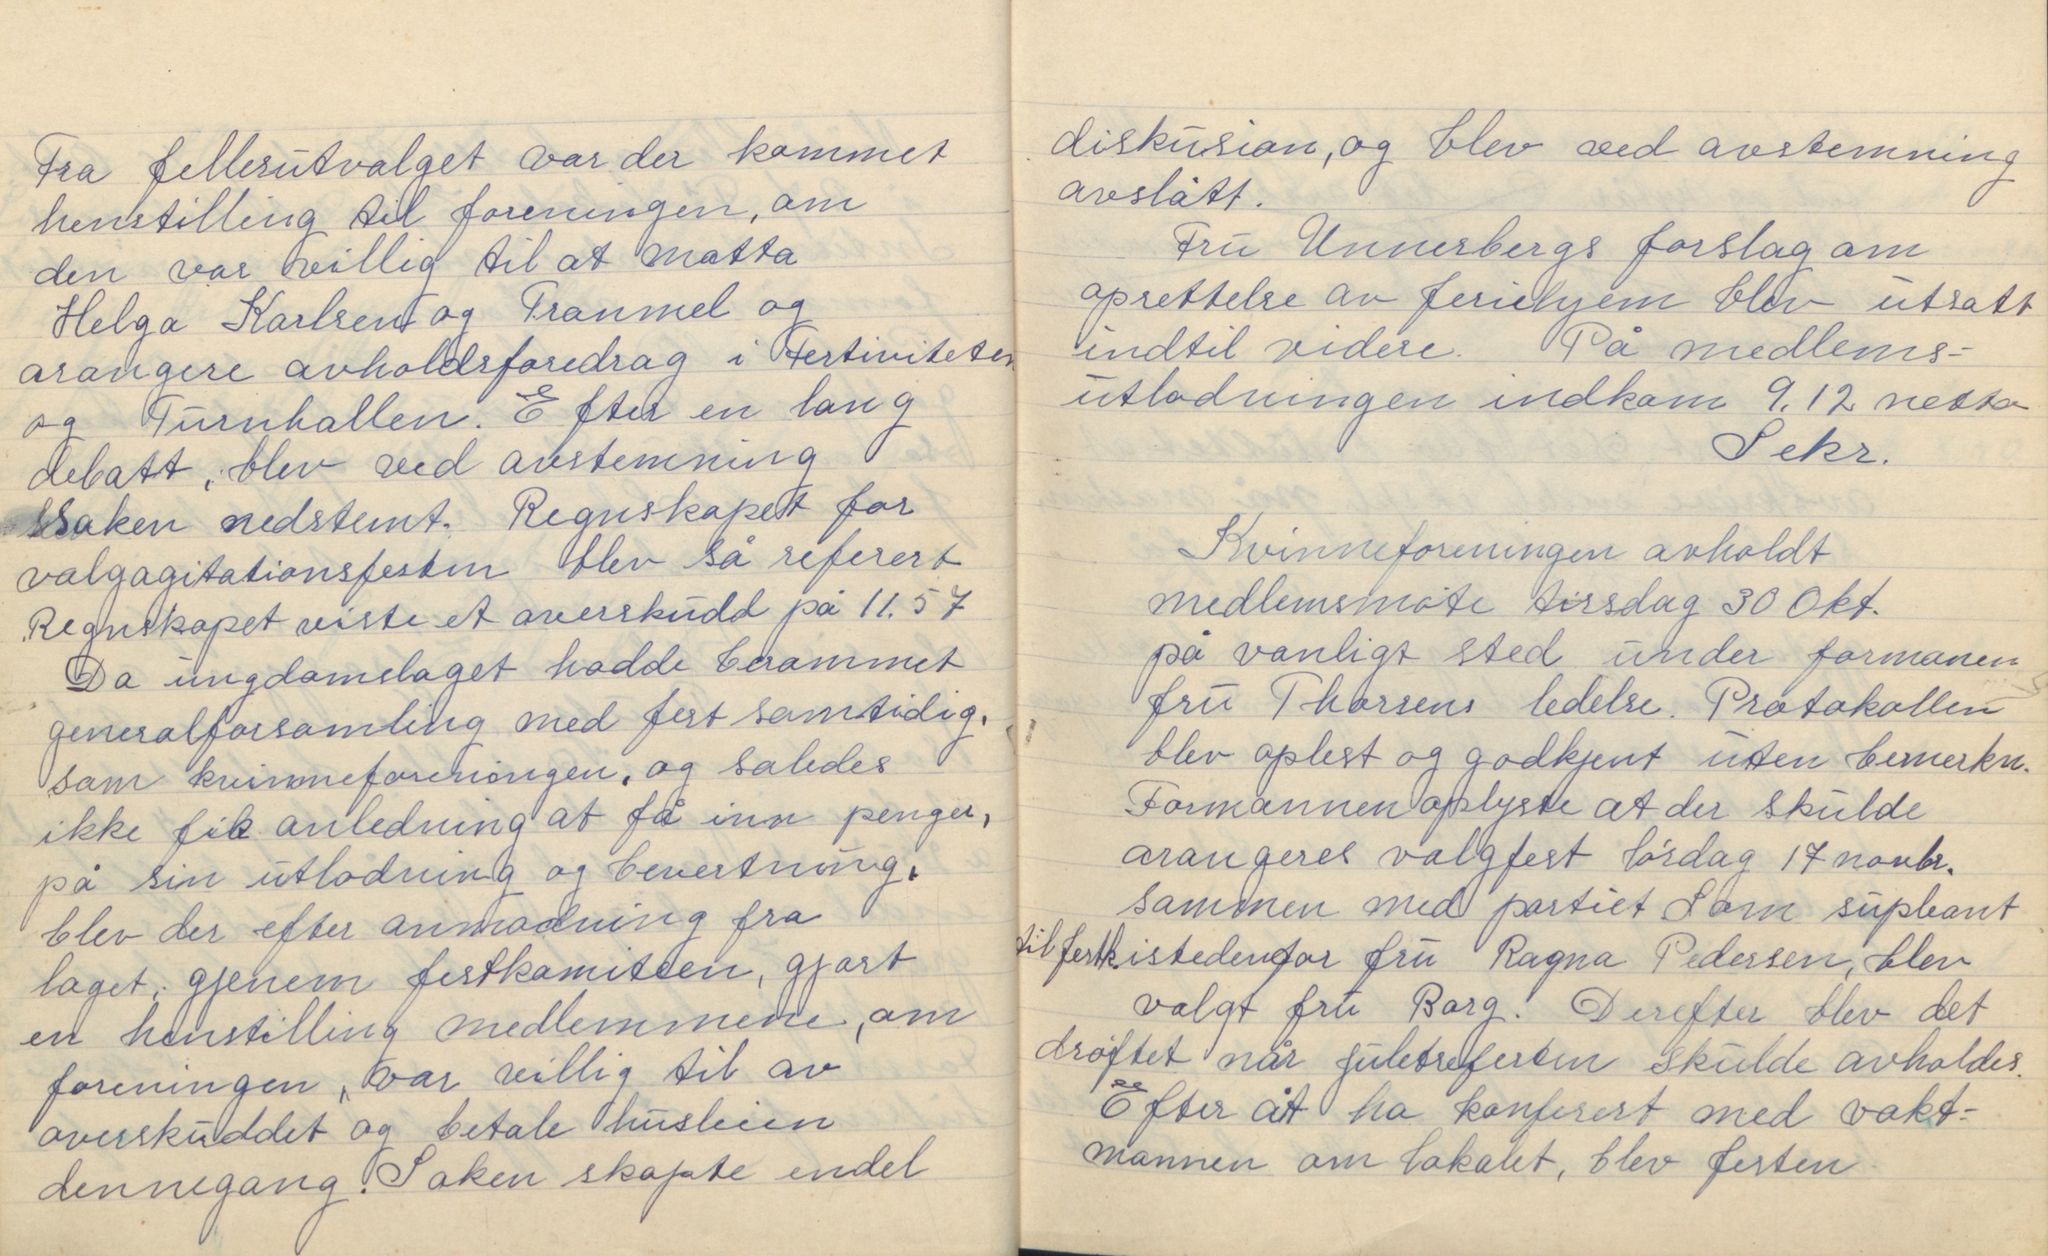 Fra fellesutvalget var der kommet
henstilling til foreningen, om
den var villig til at motta
Helga Karlsen og Tranmel og
arangere avholdsforedrag i Festiviteten
og Turnhallen. Efter en lang
debatt, blev ved avstemning
saken nedstemt. Regnskapet for
valgagitationsfesten blev så referert
Regnskapet viste et overskudd på 11.57
Da ungdomslaget hadde berammet
generalforsamling med fest samtidig,
som kvinneforeningen, og saledes
ikke fik anledning at få inn penger,
på sin utlodning og bevertning,
blev der efter anmodning fra
laget, gjenem festkomiteen, gjort
en henstilling medlemmene, om
foreningen, var villig til av
overskuddet og betale husleien
dennegang. Saken skapte endel
diskusion, og blev ved avstemning
avslått.
Fru Unnerbergs forslag om
oprettelse av feriehjem blev utsatt
indtil videre. På medlems-
utlodningen indkom 9.12 netto
Sekr.
Kvinneforeningen avholdt
medlemsmøte tirsdag 30 Okt.
på vanligt sted under formanen
fru Thorsens ledelse. Protokollen
blev oplest og godkjent uten bemerkn.
Formannen oplyste at der skulde
arangeres valgfest lørdag 17 novbr.
sammen med partiet Som supleant
til festk. istedenfor fru Ragna Pedersen, blev
valgt fru Borg. Derefter blev det
drøftet når juletrefesten skulde avholdes.
Efter åt ha konferert med vakt-
mannen om lokalet, blev festen